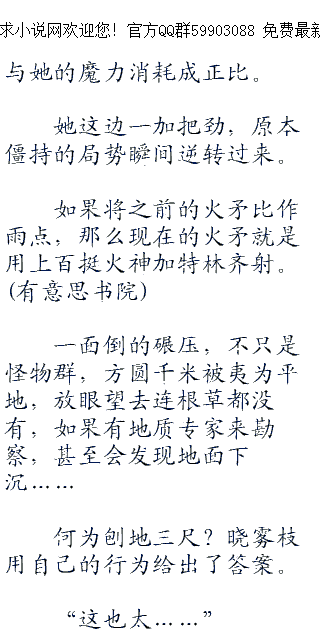 求小说网欢迎您! 官方QQ群59903088 免费最新
与她的魔力消耗成正比。
她这边一加把劲，原本
僵持的局势瞬间逆转过来。
如果将之前的火矛比作
雨点，那么现在的火矛就是
用上百挺火神加特林齐射。
(有意思书院)
一面倒的碾压，不只是
怪物群，方圆千米被夷为平
地，放眼望去连根草都没
有，如果有地质专家来勘
察，甚至会发现地面下
沉……
何为刨地三尺？晓雾枝
用自己的行为给出了答案。
“这也太……”